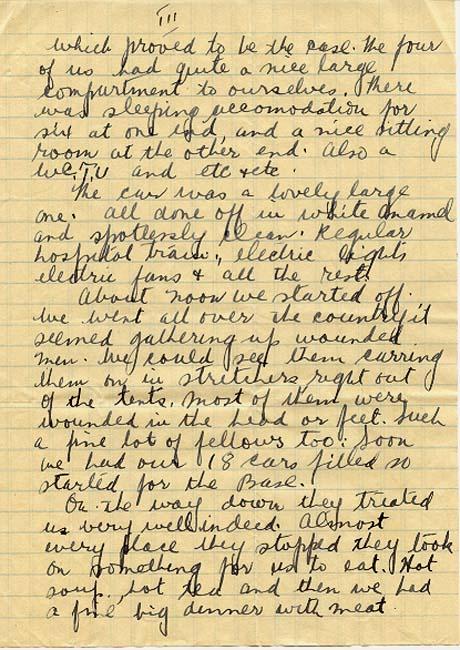 III
which proved to be the case. The four
of us had quite a nice large
compartment to ourselves. There
was sleeping accomodation for
six at one end, and a nice sitting
room at the other end. Also a
W.C.T.U and etc etc.
The car was a lovely large
one. all done off in white enamel
and spotlessly clean. Regular
hospital train, electric lights
electric fans & all the rest.
About noon we started off.
We went all over the country it
seemed gathering up wounded
men. We could see them carring
them on in stretchers right out
of the tents. Most of them were
wounded in the head or feet. Such
a fine lot of fellows too. Soon
we had our 18 cars filled so
started for the Base.
On the way down they treated
us very well indeed. Almost
every place they stopped they took
on something for us to eat. Hot
soup, hot tea and then we had
a fine big dinner with meat.